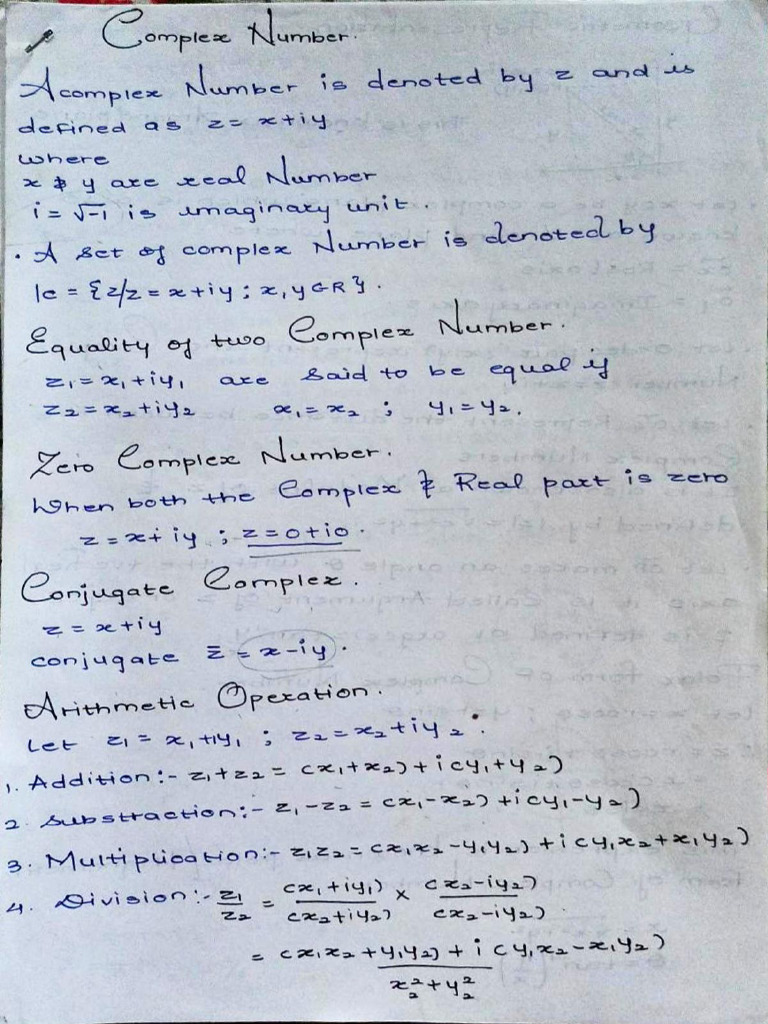 Complex Number.
A complex Number is denoted by z and is
defined as z = x+iy
where
x & y are real Number
i = √-1 is imaginary unit.
• A set of complex Number is denoted by
ℂ = {z/z = x+iy ; x, y ∈ R}.
Equality of two Complex Number.
z₁ = x₁+iy₁ are said to be equal if
z₂ = x₂+iy₂ x₁ = x₂ ; y₁ = y₂.
Zero Complex Number.
When both the Complex & Real part is zero
z = x+iy ; z = 0+i0.
Conjugate Complex.
z = x+iy
conjugate z̄ = x-iy.
Arithmetic Operation.
Let z₁ = x₁+iy₁ ; z₂ = x₂+iy₂.
1. Addition:- z₁+z₂ = (x₁+x₂)+i(y₁+y₂)
2. Substraction:- z₁-z₂ = (x₁-x₂)+i(y₁-y₂)
3. Multiplication:- z₁z₂ = (x₁x₂-y₁y₂)+i(y₁x₂+x₁y₂)
4. Division:- z₁/z₂ = (x₁+iy₁)/(x₂+iy₂) × (x₂-iy₂)/(x₂-iy₂).
= (x₁x₂+y₁y₂)+i(y₁x₂-x₁y₂)/x₂²+y₂²